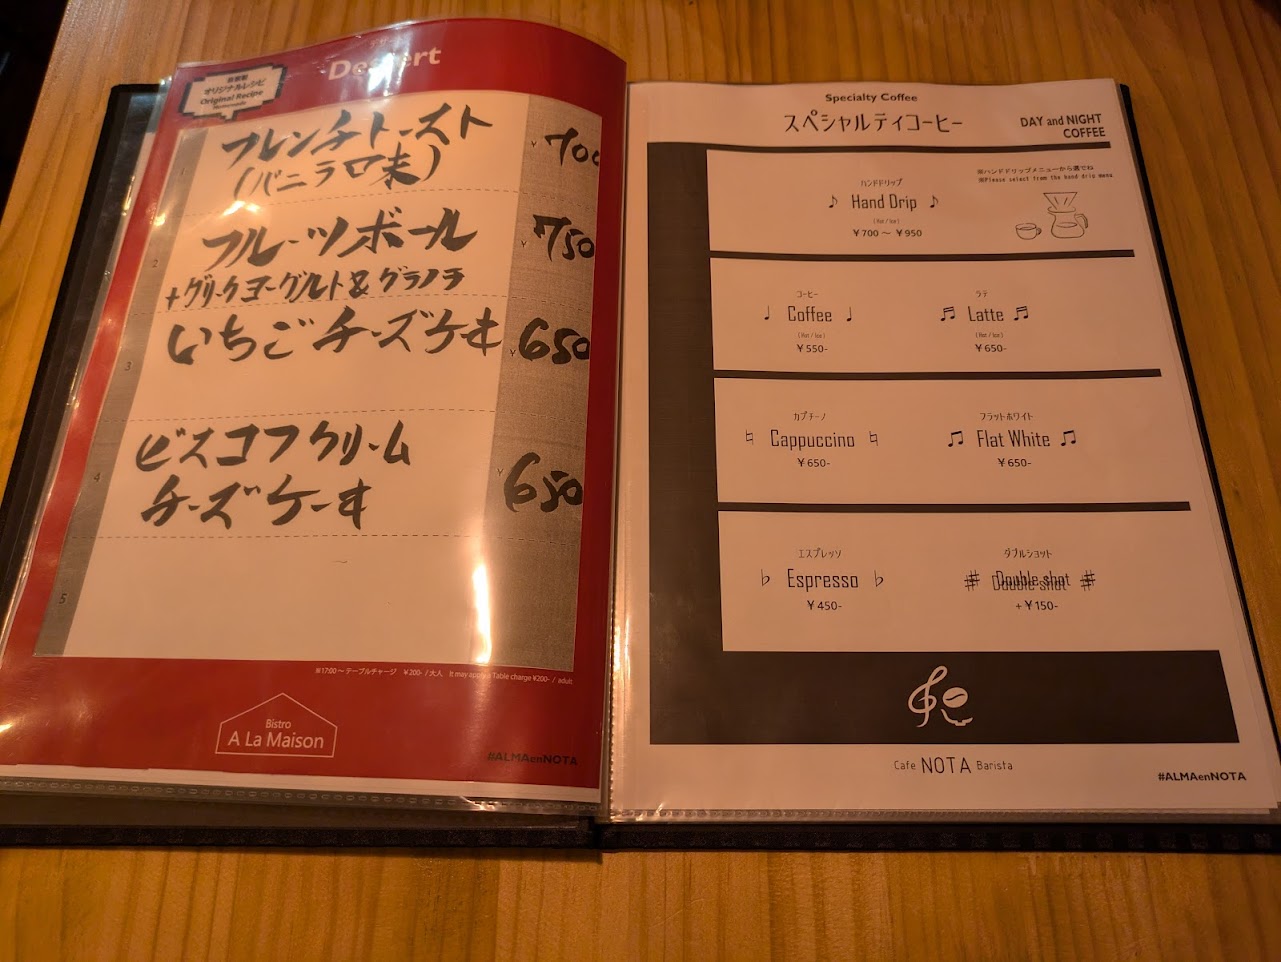 Dessert
オリジナルレシピ
Original Recipe
フレンチトースト
(バニラ口未)
¥700
2
フルーツボール
+グリークヨーグルト&グラノラ
¥750
3
いちごチーズケーキ
¥650
4
ビスコフクリーム
チーズケーキ
¥650
5
※17:00～テーブルチャージ ¥200- /大人 It may apply a Table charge ¥200- / adult
Bistro
A La Maison
#ALMAenNOTA
Specialty Coffee
スペシャルティコーヒー
DAY and NIGHT
COFFEE
※ハンドドリップメニューから選でね
※Please select from the hand drip menu
ハンドドリップ
♪ Hand Drip ♪
(Hot / Ice)
¥700 ～ ¥950
コーヒー
♩ Coffee ♩
(Hot / Ice)
¥550-
ラテ
♬ Latte ♬
(Hot / Ice)
¥650-
カプチーノ
♮ Cappuccino ♮
¥650-
フラットホワイト
♫ Flat White ♫
¥650-
エスプレッソ
♭ Espresso ♭
¥450-
ダブルショット
# Double shot #
+¥150-
Cafe NOTA Barista
#ALMAenNOTA